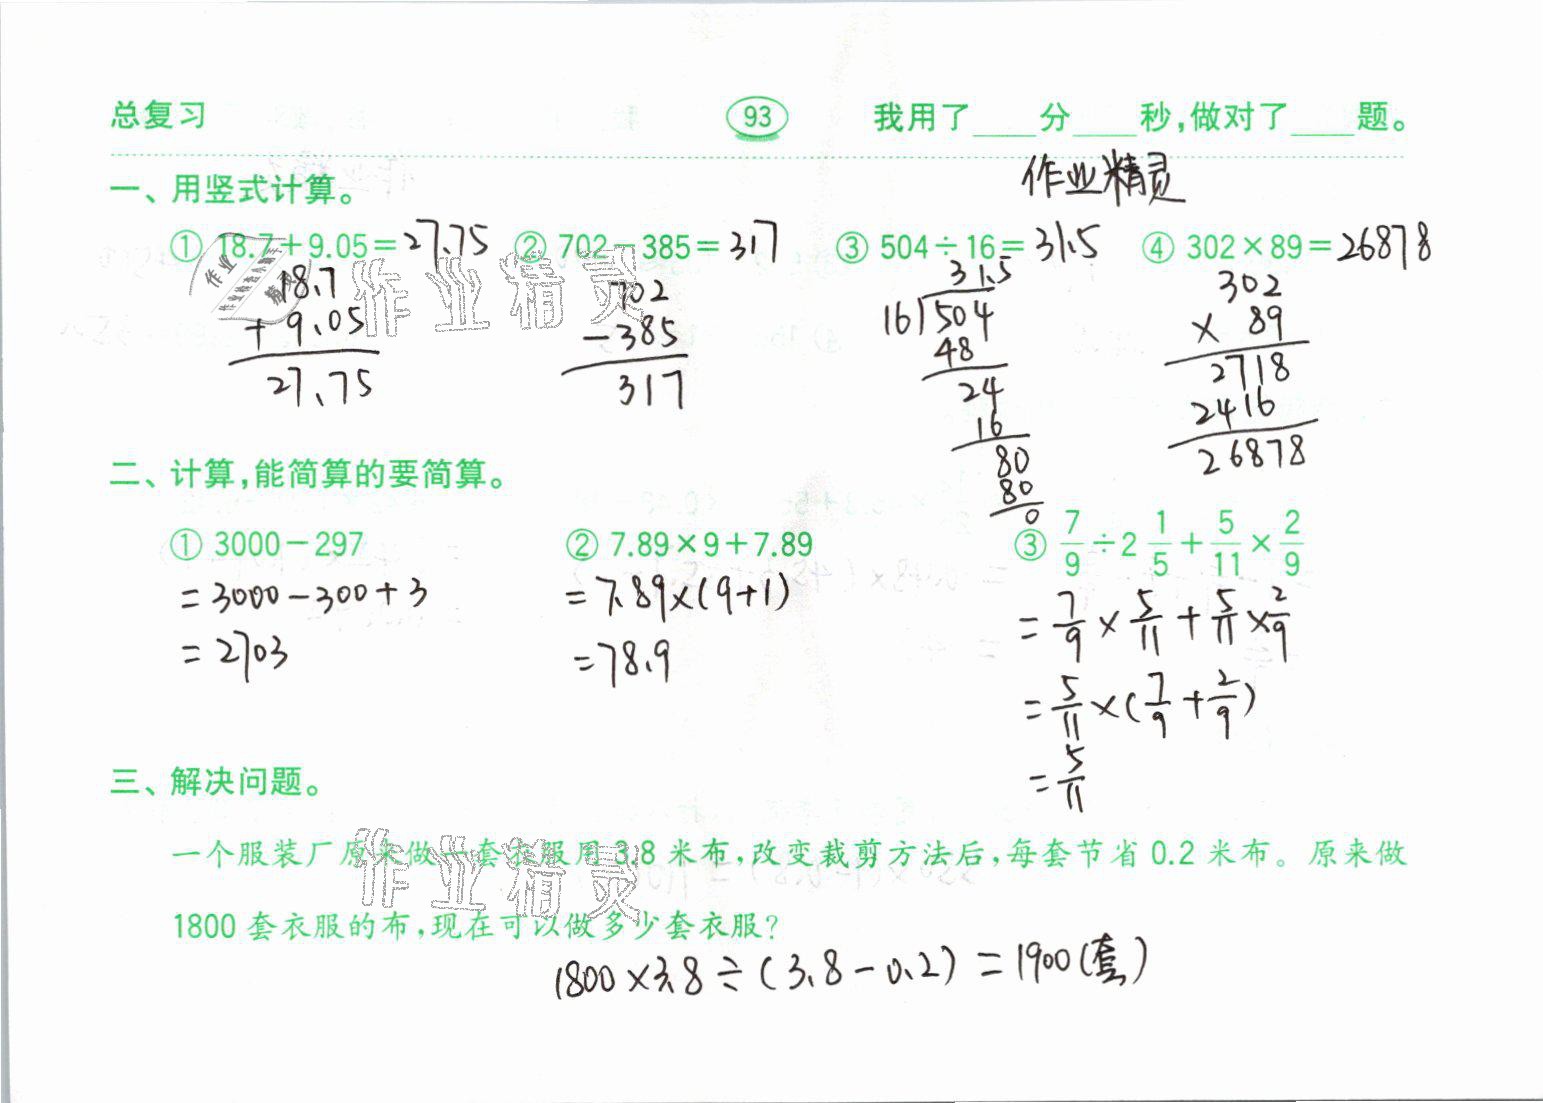 总复习 93 我用了____分____秒,做对了____题。
作业精灵
一、用竖式计算。
① 18.7+9.05=27.75 ② 702-385=317 ③ 504÷16=31.5 ④ 302×89=26878
18.7
+ 9.05
27.75
702
-385
317
31.5
16)504
48
24
16
80
80
0
302
× 89
2718
2416
26878
二、计算,能简算的要简算。
① 3000-297
=3000-300+3
=2703
② 7.89×9+7.89
=7.89×(9+1)
=78.9
③ 7/9÷2 1/5+5/11×2/9
=7/9×5/11+5/11×2/9
=5/11×(7/9+2/9)
=5/11
三、解决问题。
一个服装厂原来做一套衣服用 3.8 米布,改变裁剪方法后,每套节省 0.2 米布。原来做
1800 套衣服的布,现在可以做多少套衣服?
1800×3.8÷(3.8-0.2)=1900(套)
作业精灵
作业精灵
作业
作业检查小助手
精灵